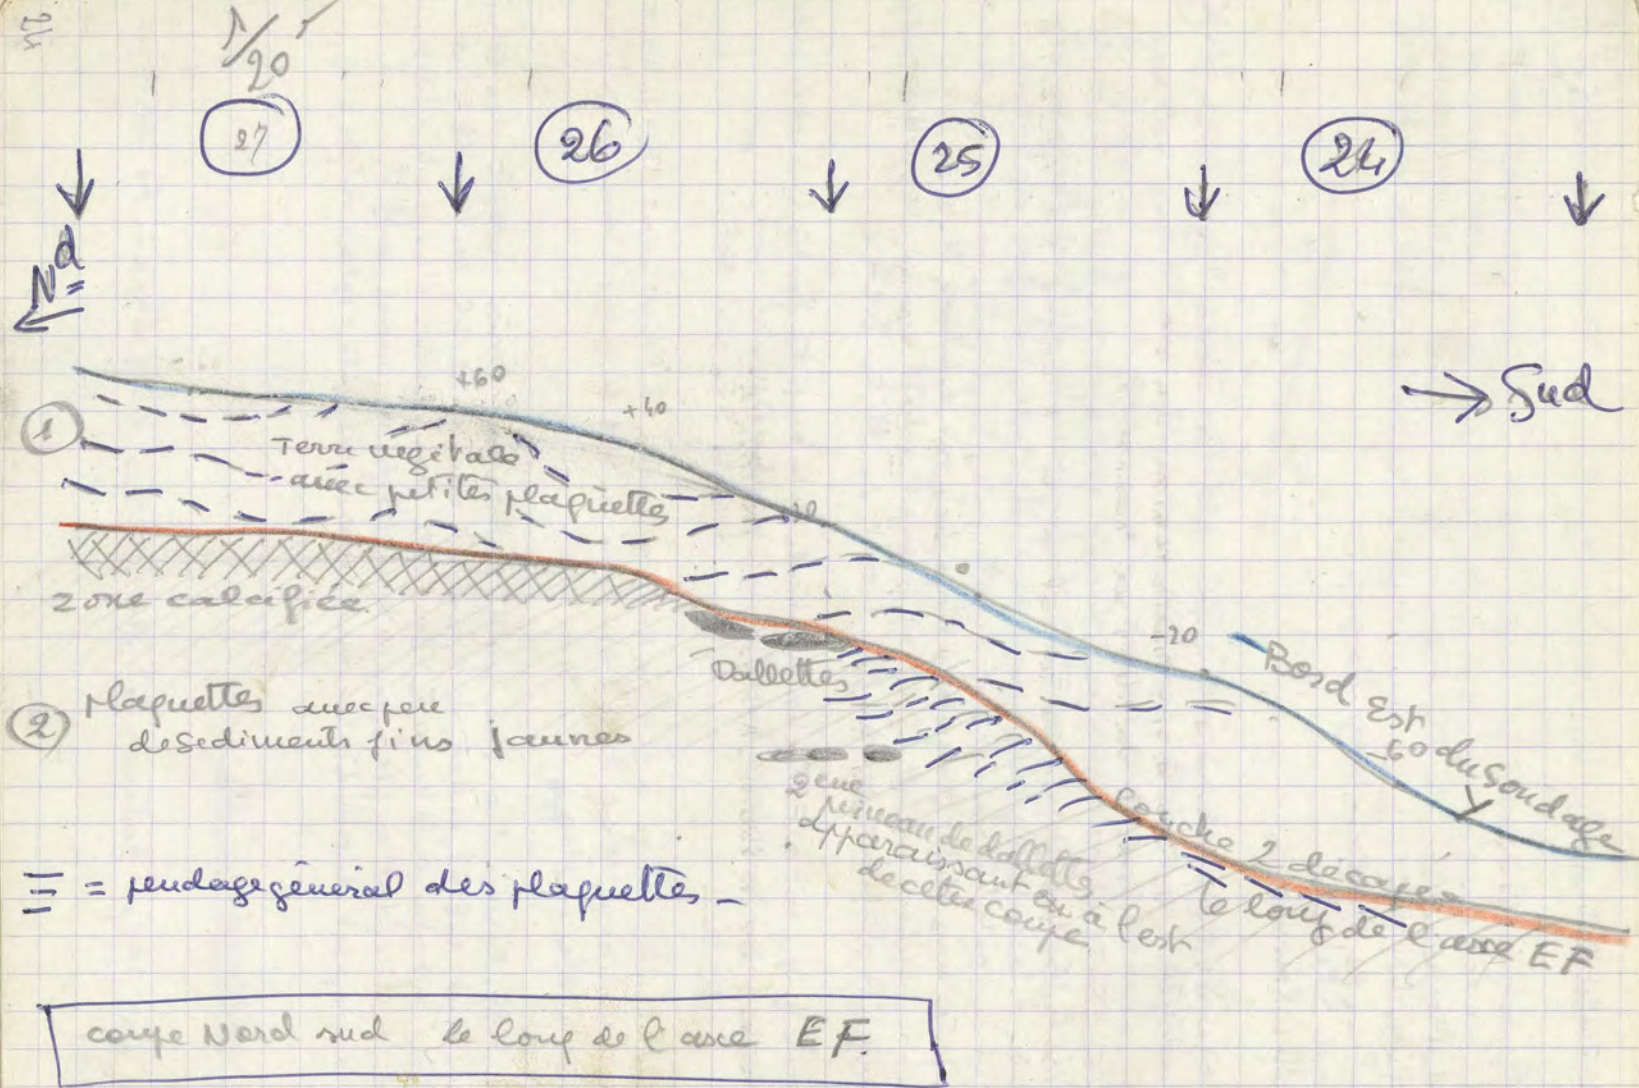 1/20
27
26
25
24
Nd
Sud
+60
+40
1
Terre végétale
avec petites plaquettes
zone calcifiée
-20
Bord Est du Sondage
-60
Dallettes
2
plaquettes avec peu
de sediments fins jaunes
2eme
niveau de dallettes
apparaissant à l'est
de cette coupe
couche 2 décapée
le long de l'axe EF
= pendage général des plaquettes -
coupe Nord sud le long de l'axe EF.